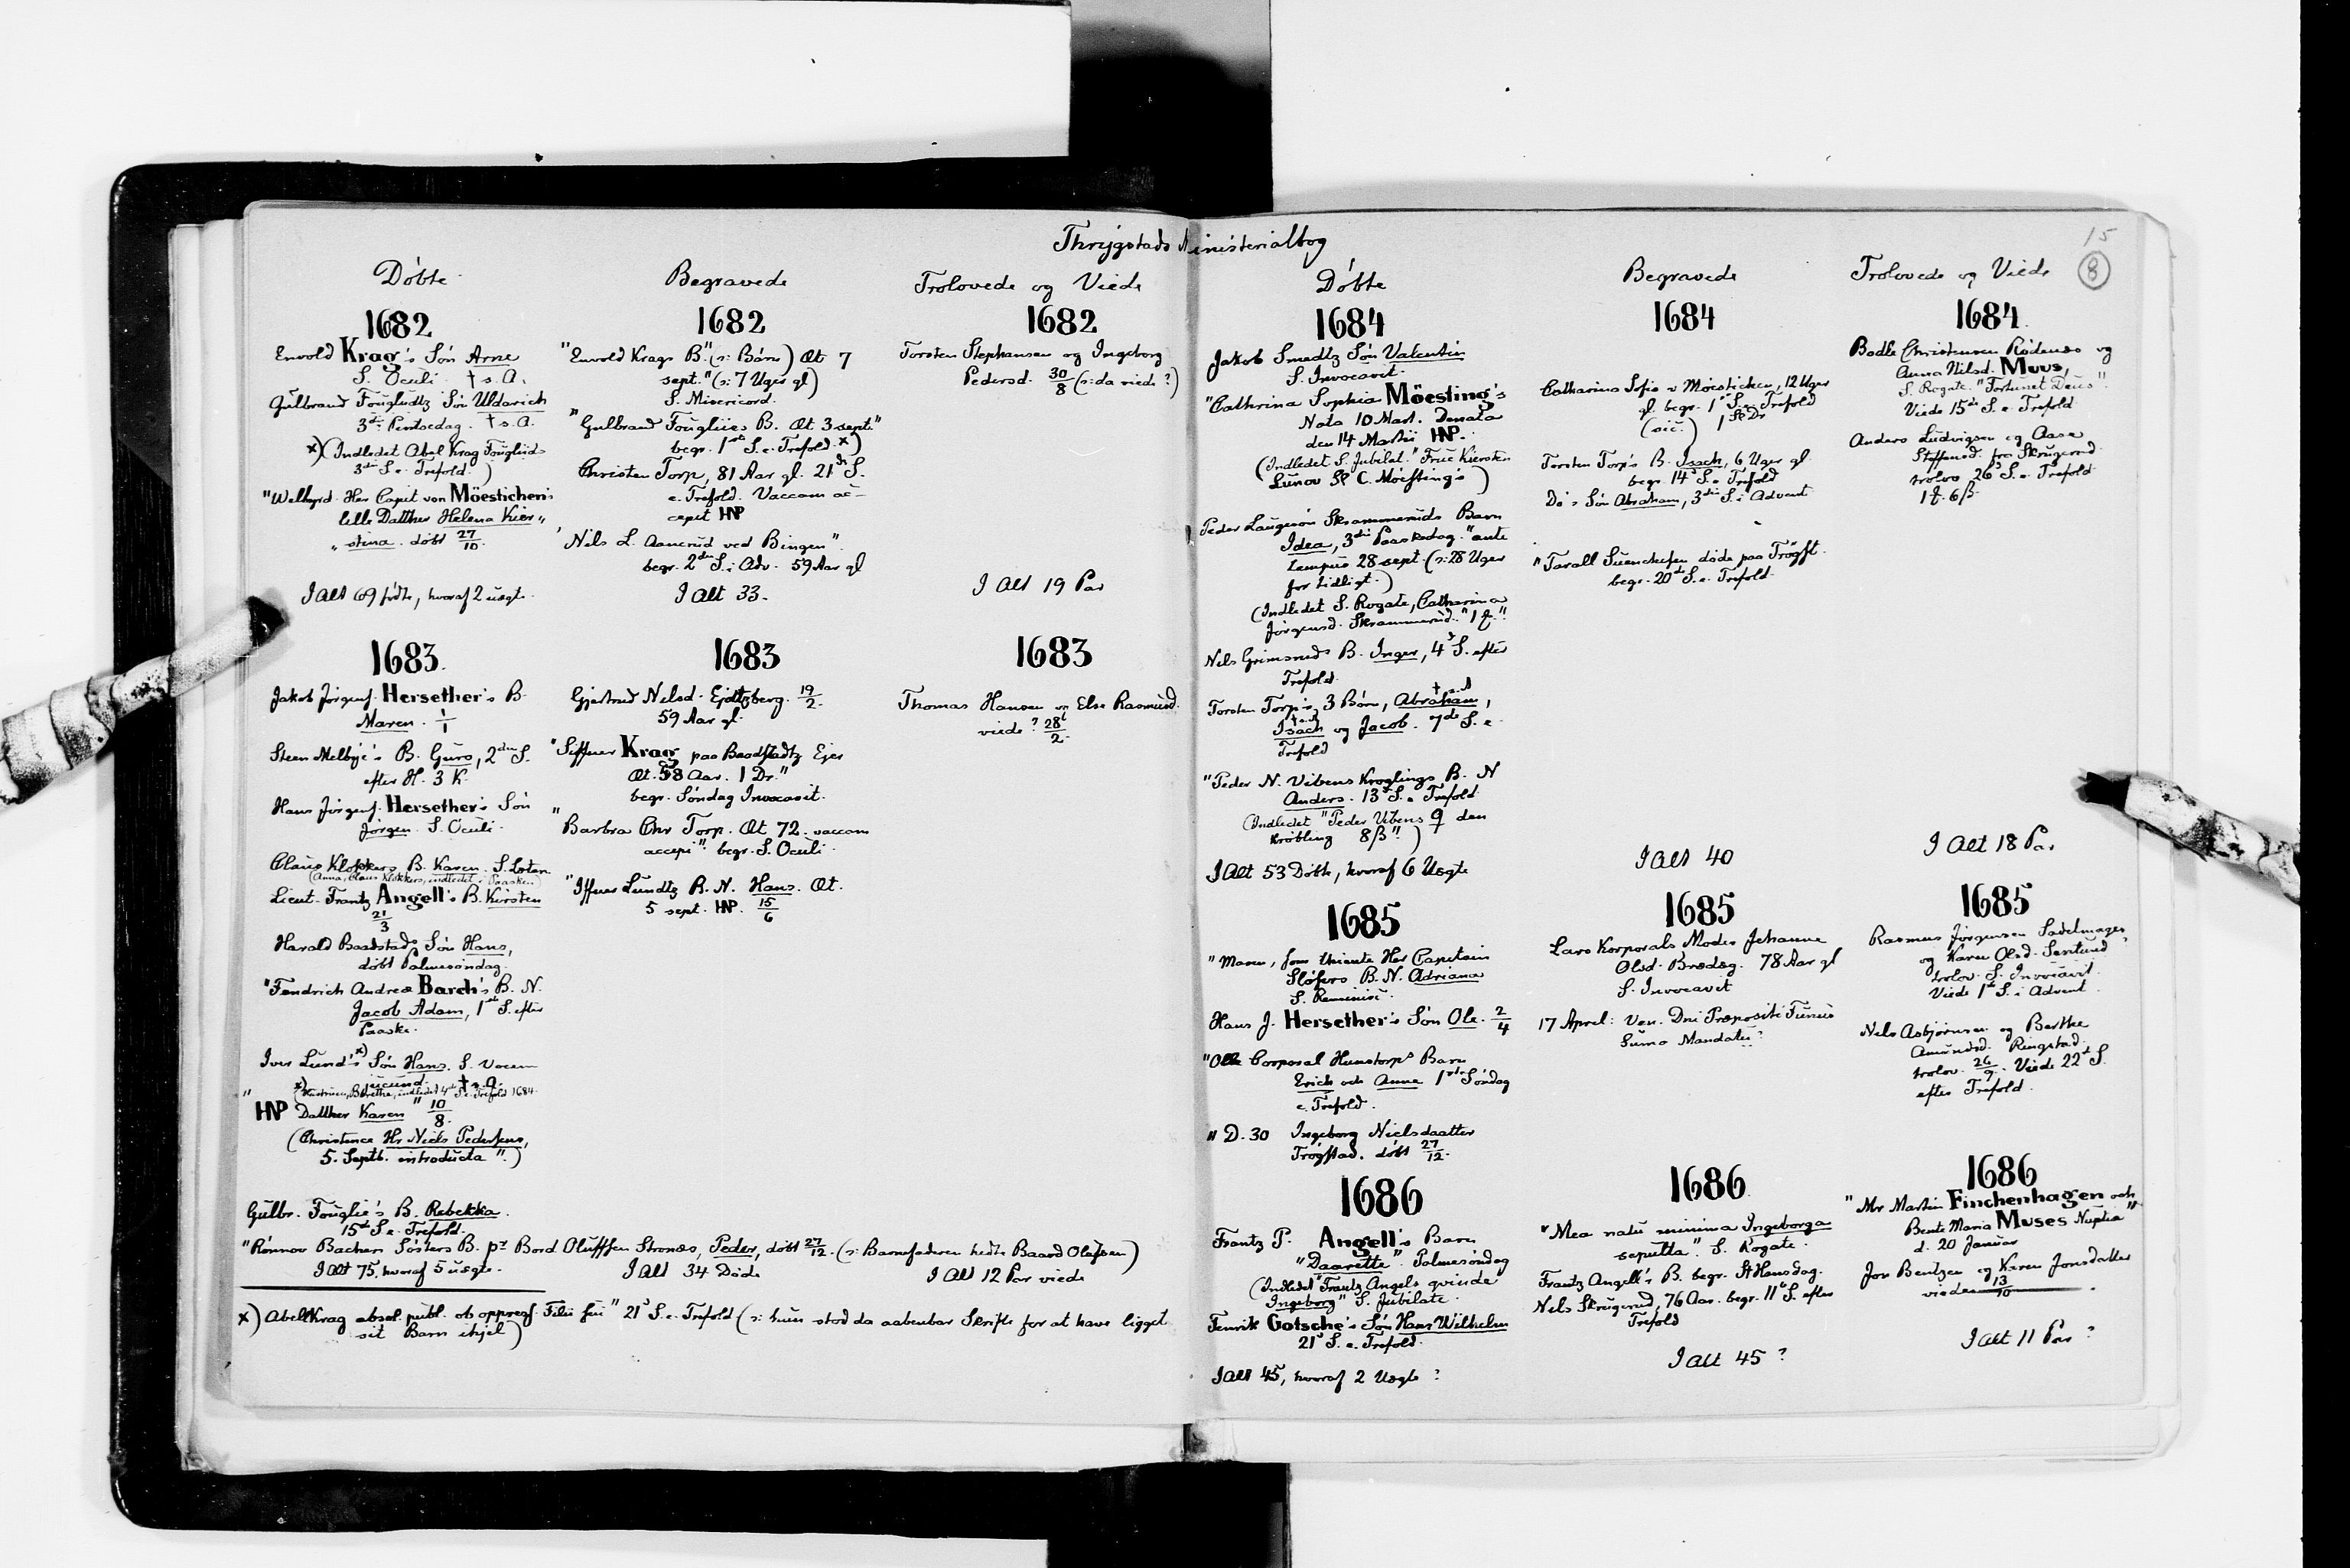 Thrygstads Ministerialbog
15
8
Döbte
1682
Envold Krag's Sön Arne
S. Oculi. † s. A.
Gulbrand Fougludtz Sön Uldarich
3die Pintsedag. † s. A.
x) (Indledet Abel Krag Fouglud
3die S. e. Trefold.)
"Welbyrd. Her Capit von Möestichen's
lille Datther Helena Kier„
„stina. döbt 27/10.
I Alt 69 födte, hvoraf 2 uægte.
1683.
Jakob Jörgens. Hersether's B.
Maren. 1/1
Steen Melbye's B. Guro, 2den S.
efter H. 3 K.
Hans Jörgens. Hersether's Sön
Jörgen. S. Oculi.
Claus Klokkers B. Karen. S. Lætare
(Anna, Claus Klokkers, indledet i Paasken)
Lieut. Frantz Angell's B. Kirsten
21/3
Harald Baadstads Sön Hans,
döbt Palmesöndag.
"Fendrich Andrea Barch's B. N.
Jacob Adam, 1ste S. efter
Paaske.
Iver Lund's x) Sön Hans. S. Vocem
jucund. † s. A.
x) (Hustruen, Birethe, indledet 4de S. e. Trefold 1684.
" HNP Datther Karen" 10/8.
(Christence Hr. Niels Pedersens,
5. Septb. introducta".)
Gulbr. Fouglie's B. Rebekka.
15de S. e. Trefold.
"Rönnov Bachen Sösters B. pr Bord Oluffsen Stronæs, Peder, döbt 27/12. (ɔ: Barnefaderen hedte Baard Olafsen)
I Alt 75, hvoraf 5 uægte.
x) Abell Krag absol. publ. ob oppress. Filii sui" 21de S. e. Trefold (ɔ: hun stod da aabenbar Skrifte for at have ligget
sit Barn ihjel)
Begravede
1682
"Envold Krags B." (ɔ: Barn) Æt 7
sept." (ɔ: 7 Uger gl)
S. Misericord.
"Gulbrand Fouglies B. Æt 3 sept."
begr. 1ste S. e. Trefold. x)
Christen Torp, 81 Aar gl. 21de S.
e. Trefold. Vaccam ac-
cepit HNP
"Nils L. Aaserud ved Bingen".
begr. 2den S. i Adv. 59 Aar gl
I Alt 33.
1683
Gjertrud Nilsd. Ejdtzberg. 19/2.
59 Aar gl.
"Siffuer Krag paa Baadstadtz Ejer
Æt. 58 Aar. 1 Dr."
begr. Söndag Invocavit.
"Barbra Chr Torp. Æt 72. vaccam
accepi" begr. S. Oculi.
"Iffuer Lundtz B. N. Hans. Æt.
5 sept. HNP. 15/6
I Alt 34 Döde
Trolovede og Viede
1682
Torsten Stephansen og Ingeborg
Pedersd. 30/8 (ɔ: da viede?)
I Alt 19 Par
1683
Thomas Hansen og Else Rasmusd.
viede? 28/2.
I Alt 12 Par viede
Döbte
1684
Jakob Smedtz Sön Valentin
S. Invocavit.
"Cathrina Sophia Möesting's
Nata 10 Mart. Denata
den 14 Martii HNP.
(Indledet S. Jubilat." Frue Kiersten
Lunov Sl C. Möestings)
Peder Laugesön Skrammeruds Barn
Idea, 3die Paaskedag. "ante
tempus 28 sept. (ɔ: 28 Uger
for tidligt.)
(Indledet S. Rogate, Catharina
Jörgensd. Skrammerud. "1
Nils Grimsruds B. Inger, 4de S. efter
Trefold.
Torsten Torp's 3 Börn, Abraham, † s. A
Isach † s. A og Jacob. 7de S. e.
Trefold
"Peder N. Vibens Kroglings B. N
Anders. 13de S. e. Trefold
(Indledet "Peder Vibens ♀ den
Krobling 8 β")
I Alt 53 Döbte, hvoraf 6 Uægte
1685
"Maren, som thiente Her Capitain
Slöfers B. N. Adriana
S. Reminisc.
Hans J. Hersether's Sön Ole. 2/4
"Olle Corporal Humstorps Barn
Erich och Anna 1ste Söndag
e. Trefold.
"D. 30 Ingeborg Nielsdaatter
Trögstad. döbt 27/12.
1686
Frantz P. Angell's Barn
"Daarette". Palmesöndag
(Indledet "Frantz Angels qvinde
Ingeborg" S. Jubilate.
Fenrik Gotsche's Sön Hans Wilhelm
21de S. e. Trefold.
I Alt 45, hvoraf 2 Uægte?
Begravede
1684
Catharina Sofie v Möestichen, 12 Uger
gl. begr. 1ste S. e. Trefold
(sic.) 1 Sk Dr
Torsten Torp's B. Isach, 6 Uger gl.
begr. 14de S. e. Trefold
Do's Sön Abraham, 3die S. i Advent
"Tarall Suenchesen döde paa Trögst.
begr. 20de S. e. Trefold.
I Alt 40
1685
Lars Korporals Moder Johanne
Olsd. Brødeg. 78 Aar gl
S. Invocavit
17 April: Ven. Dni Præpositi Funus
Sumo Mandatu?
1686
"Mea natu minima Ingeborga
sepulta". S. Rogate.
Frantz Angell's B. begr. St Hansdag.
Nels Skrugerud, 76 Aar. begr. 11te S. efter
Trefold
I Alt 45?
Trolovede og Viede
1684.
Bodle Christensen Rödenæs og
Anna Nilsd. Muus,
S. Rogate. "Fortunet Deus".
Viede 15de S. e. Trefold
Anders Ludvigsen og Aase
Steffensd. fra Skrugerud.
trolov 26de S. e. Trefold
1 6 β.
I Alt 18 Par
1685
Rasmus Jörgensen Sadelmager
og Karen Olsd.
trolov. S. Invocavit.
Viede 1ste S. i Advent.
Nels Asbjörnsen og Berthe
Amundsd. Ringstad.
trolov. 26/9. Viede 22de S.
efter Trefold.
1686
"Mr Martin Finchenhagen och
Bente Maria Muses Nuptia"
d. 20 Januar
Jon Bentzen og Karen Jonsdatter
viede 13/10.
I Alt 11 Par?